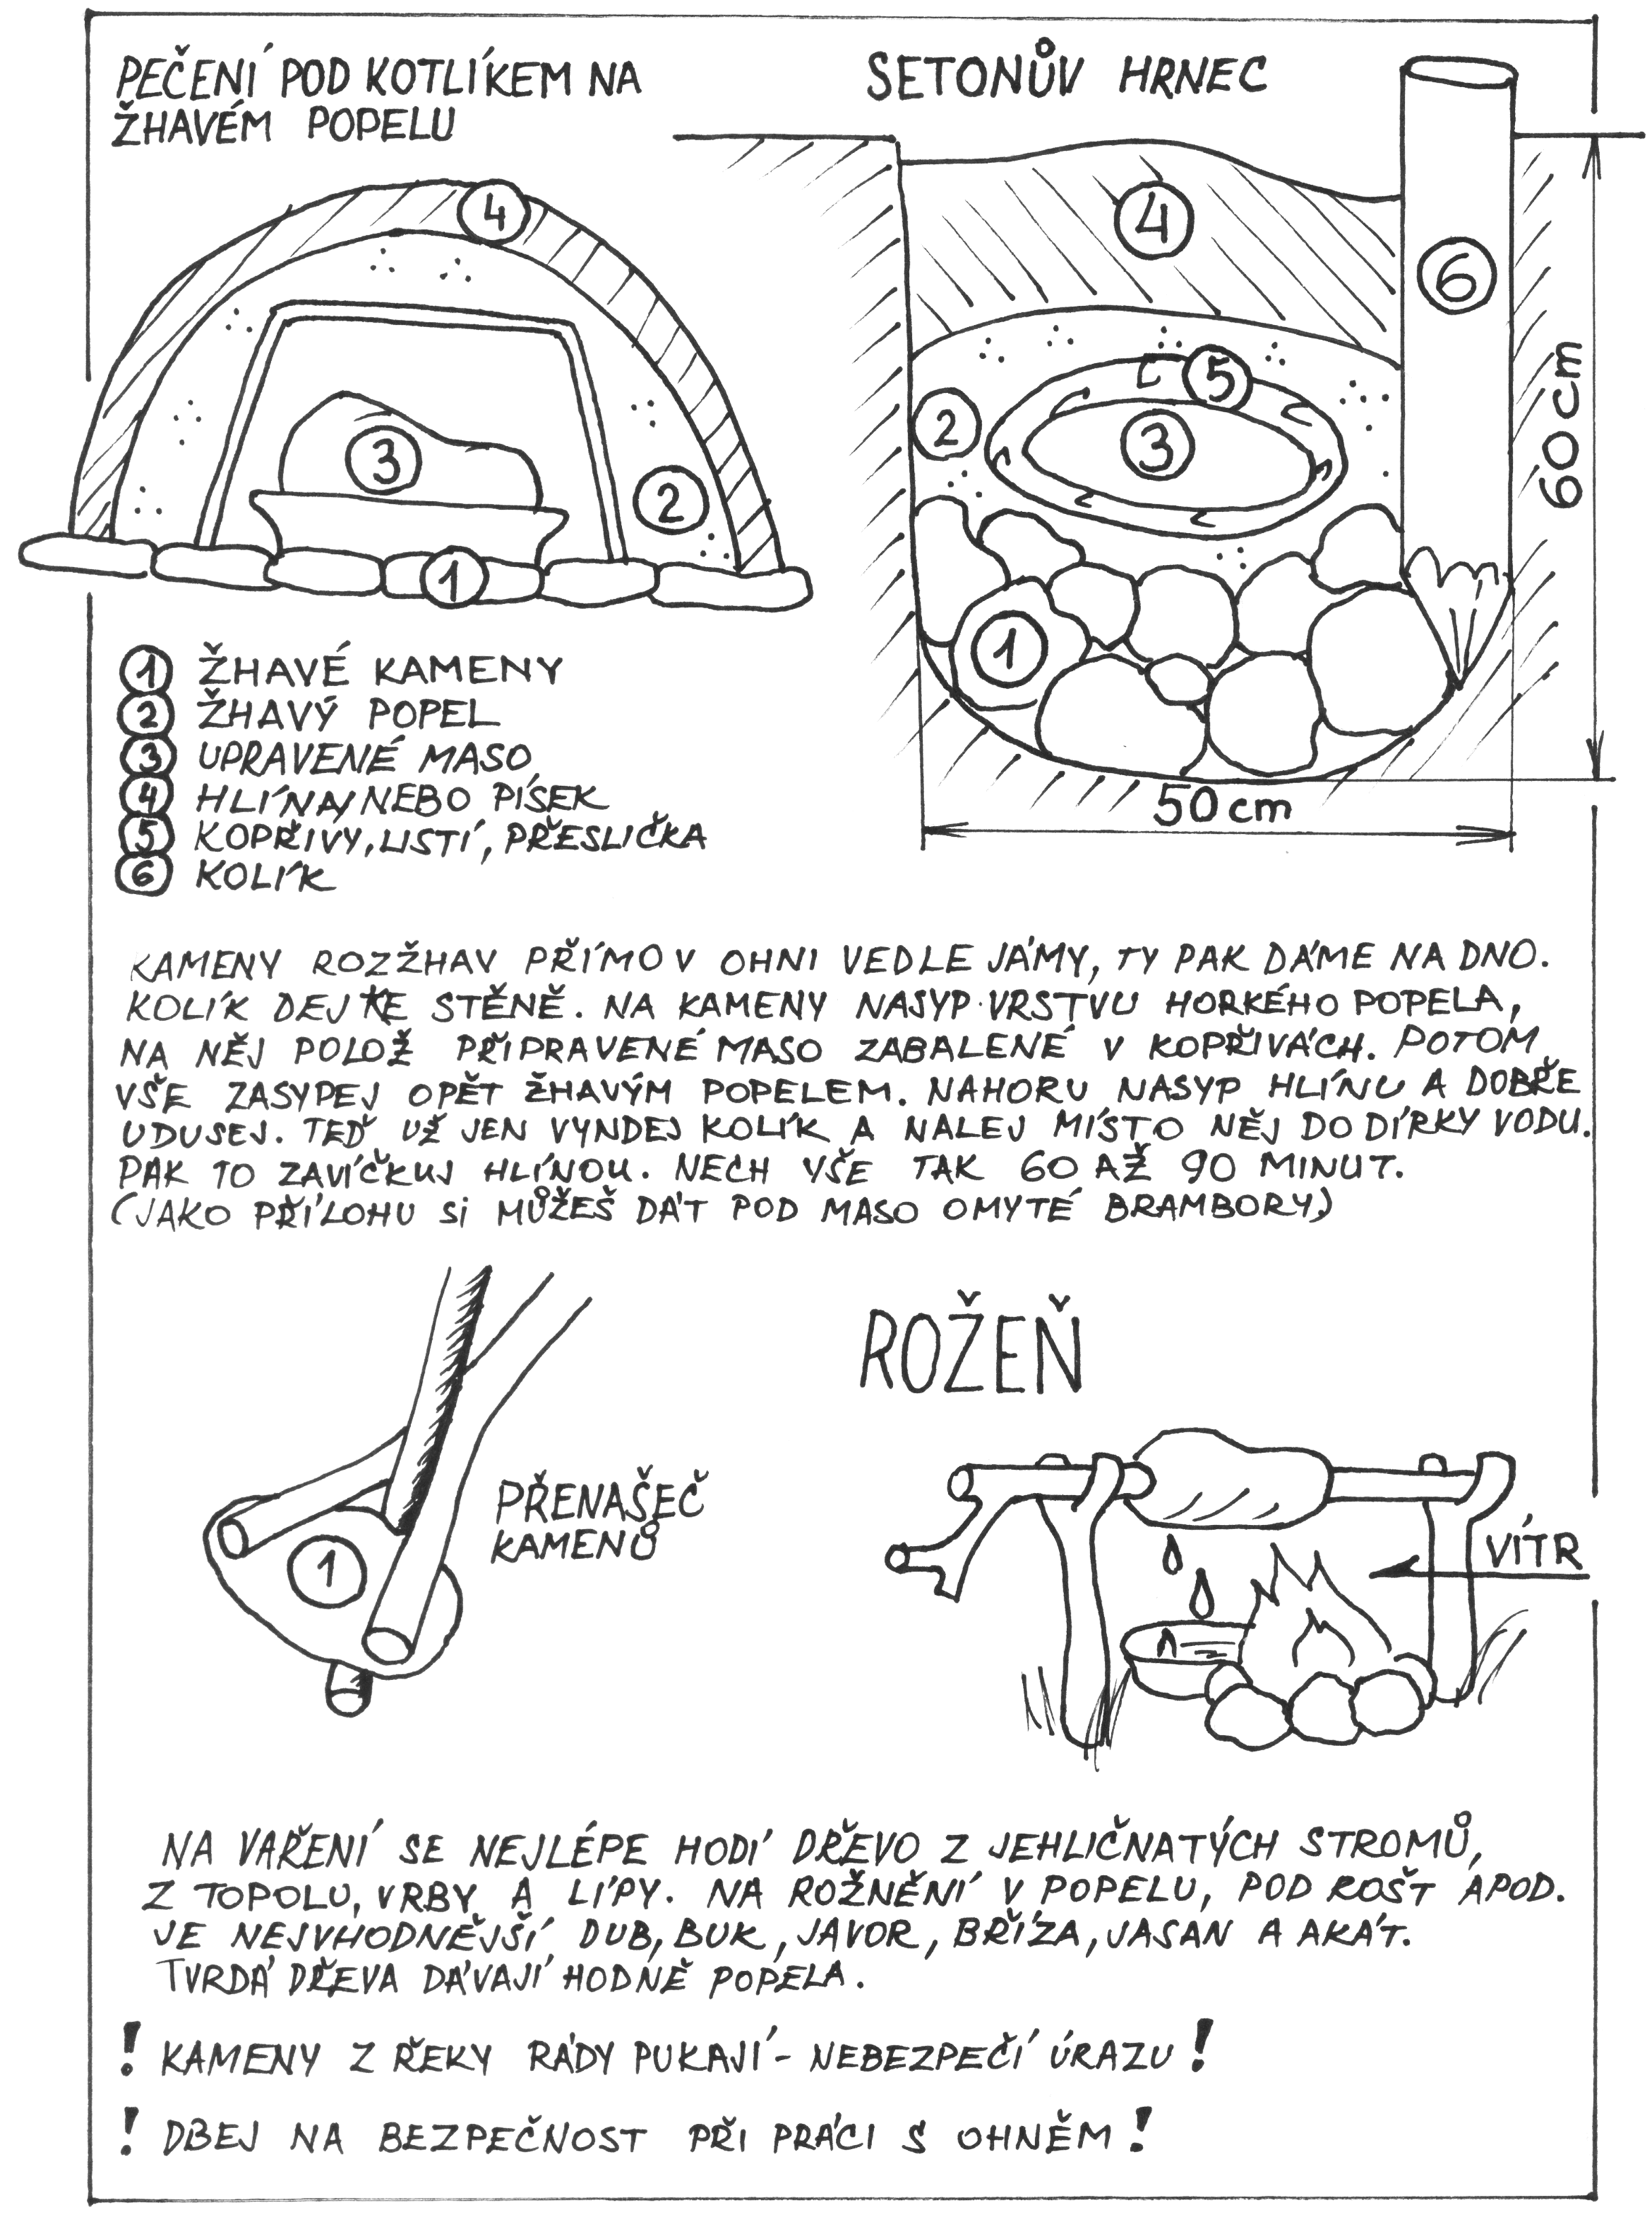 PEČENÍ POD KOTLÍKEM NA
ŽHAVÉM POPELU
4
3
2
1
SETONŮV HRNEC
4
6
5
2
3
1
60 cm
50 cm
1 ŽHAVÉ KAMENY
2 ŽHAVÝ POPEL
3 UPRAVENÉ MASO
4 HLÍNA/NEBO PÍSEK
5 KOPŘIVY, LISTÍ, PŘESLIČKA
6 KOLÍK
KAMENY ROZŽHAV PŘÍMO V OHNI VEDLE JÁMY, TY PAK DÁME NA DNO.
KOLÍK DEJ KE STĚNĚ. NA KAMENY NASYP VRSTVU HORKÉHO POPELA,
NA NĚJ POLOŽ PŘIPRAVENÉ MASO ZABALENÉ V KOPŘIVÁCH. POTOM
VŠE ZASYPEJ OPĚT ŽHAVÝM POPELEM. NAHORU NASYP HLÍNU A DOBŘE
UDUSEJ. TEĎ UŽ JEN VYNDEJ KOLÍK A NALEJ MÍSTO NĚJ DO DÍRKY VODU.
PAK TO ZAVÍČKUJ HLÍNOU. NECH VŠE TAK 60 AŽ 90 MINUT.
(JAKO PŘÍLOHU SI MŮŽEŠ DÁT POD MASO OMYTÉ BRAMBORY)
1
PŘENAŠEČ
KAMENŮ
ROŽEŇ
VÍTR
NA VAŘENÍ SE NEJLÉPE HODÍ DŘEVO Z JEHLIČNATÝCH STROMŮ,
Z TOPOLU, VRBY A LÍPY. NA ROŽNĚNÍ V POPELU, POD ROŠT APOD.
JE NEJVHODNĚJŠÍ DUB, BUK, JAVOR, BŘÍZA, JASAN A AKÁT.
TVRDÁ DŘEVA DÁVAJÍ HODNĚ POPELA.
! KAMENY Z ŘEKY RÁDY PUKAJÍ - NEBEZPEČÍ ÚRAZU !
! DBEJ NA BEZPEČNOST PŘI PRÁCI S OHNĚM !